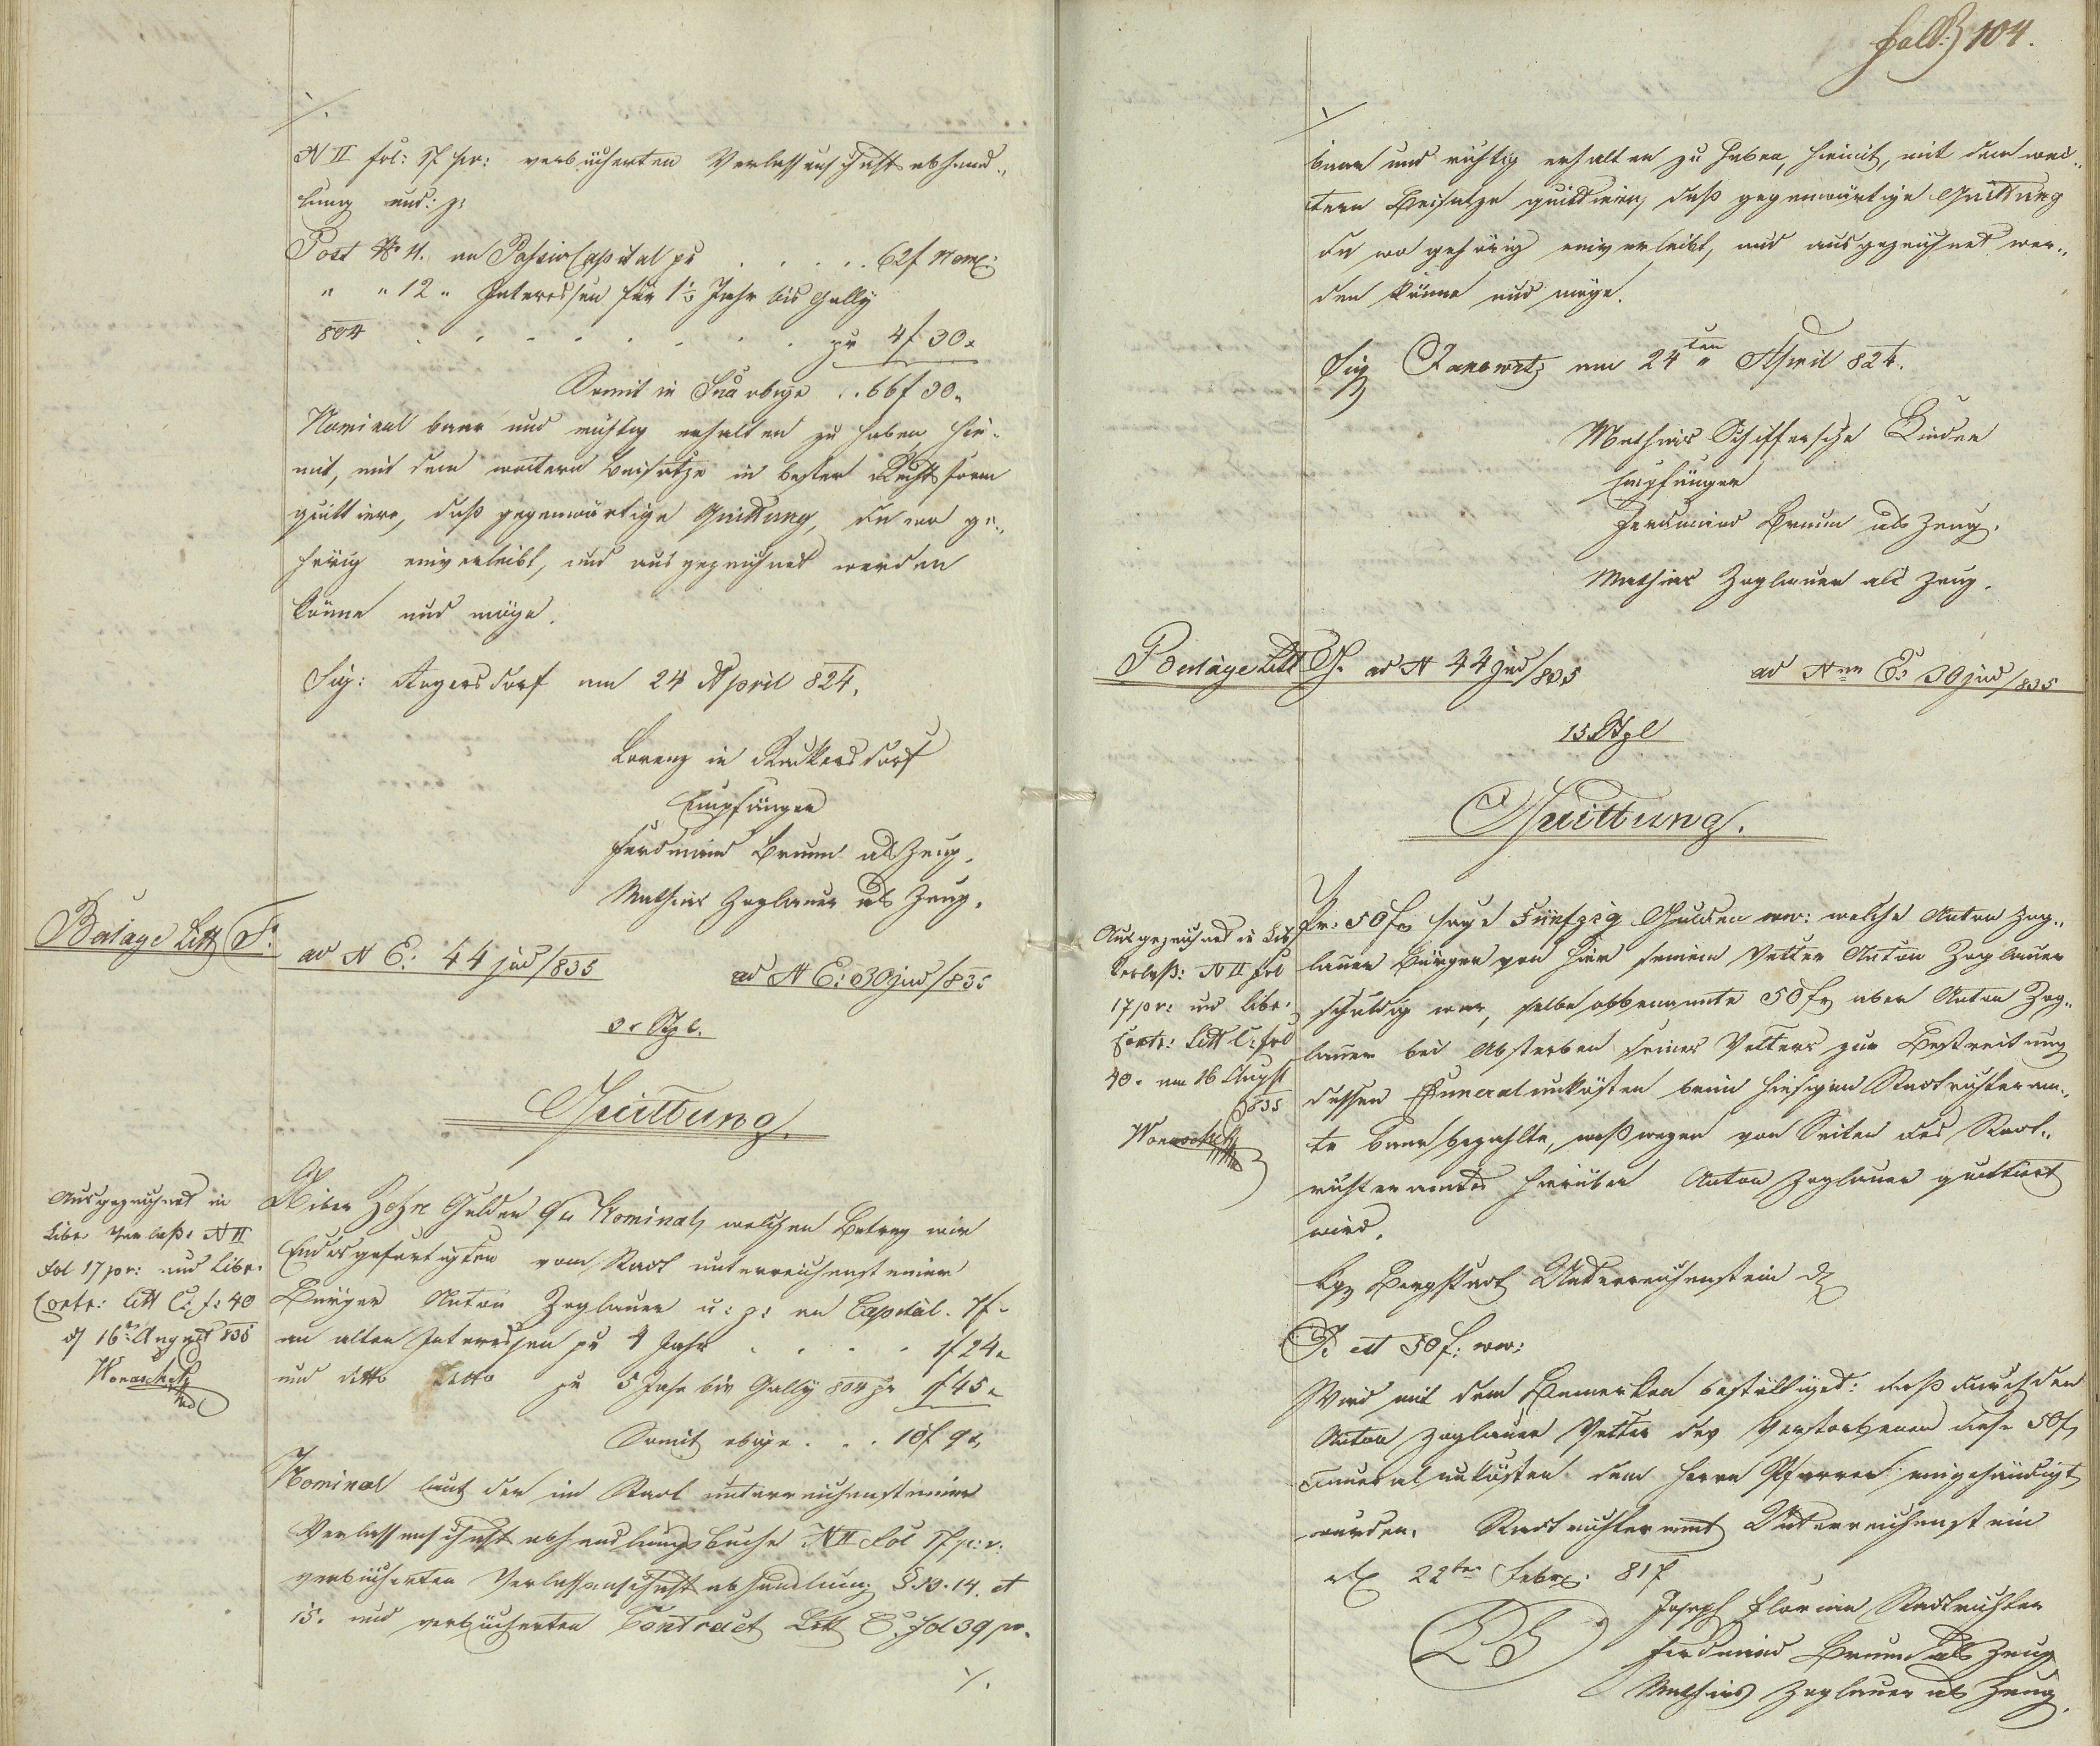 N II fol: 17 pr: verbücherten Verlassenschaftsabhand„
lung und: z:
Post № 11. an Passiv Capital pr . . . . . 62f Nom:
" " 12 " Interessen für 1½ Jahr bis Gally
804 . . . . . . . . pr 4f 30x
Somit in Sua obige . . 66f 30x
Nominal baar und richtig erhalten zu haben, hie„
mit, mit dem weitern Beisatze in bester Rechtsform
quittiere, daß gegenwärtige Quittung, da wo ge„
hörig einverleibt, und ausgezeichnet werden
könne und möge.
Sig: Angersdorf am 24 April 824.
Lorenz in Rukersdorf
Empfänger
Ferdinand Braun als Zeug.
Mathias Zoglauer als Zeug.
Beilage Litt F.
ad N E: 44 jud/835
ad N E: 30 jud/835
3x Stpl.
Quittung.
Ausgezeichnet in
Libr Verlaß: N II
Fol 17 pr: und Libr.
Contr: Litt C: f: 40
d 16t August 835
Wonaschek
Über Zehn Gulden 9x Nominal, welchen Betrag wir
Endesgefertigten vom Stadt unterreichensteiner
Bürger Anton Zoglauer u: z: an Capital . 7f–
an alten Interessen pr 4 Jahr . . . . 1f 24x
und ditto ditto pr 5 Jahr bis Gally 804 pr 1f 45x
Somit obige . . . 10f 9x
Nominal laut der im Stadt unterreichensteiner
Verlassenschaftsabhandlungsbuche N II Fol 17 p: v:
verbücherten Verlassenschaftsabhandlung §. 13. 14. et
15. und verbücherten Contract Litt C. fol 39 pr.
%.
Fol. 104.
baar und richtig erhalten zu haben, hiemit, mit dem wei„
tern Beisatze quittieren, daß gegenwärtige Quittung
da wo gehörig einverleibt, und ausgezeichnet wer„
den könne und möge.
Sig Janowitz am 24ten April 824.
Mathias Schiffersche Kinder
Empfänger
Ferdinand Braun als Zeug.
Mathias Zoglauer als Zeug.
Beilage Litt G. ad N 44 jud/835
ad Nrm E: 30 jud/835
15x Stpl
Quittung.
Ausgezeichnet in Lib
Verlaß: N II Fol
17 pr: und Libr.
Contr: Litt C: fol
40. am 16 August
835
Wonaschek
Pr: 50 f sage Fünfzig Gulden ww: welche Anton Zog„
lauer Bürger von hier seinem Vetter Anton Zoglauer
schuldig war, selbe obbenannte 50 f aber Anton Zog„
lauer bei Absterben seines Vetters zur Bestreitung
dessen Funeralunkösten beim hiesigen Stadtrichteram„
te baar bezahlte, weßwegen von Seiten des Stadt„
richteramts hierüber Anton Zoglauer quittiert
wird.
Kgs Bergstadt Unterreichenstein
Id est 50 f: ww:
Wird mit dem Bemerken bestättiget: daß durch den
Anton Zoglauer Vetter des Verstorbenen diese 50 f
Funeralunkösten dem Herrn Pfarrer eingehändigt
wurden. Stadtrichteramt Unterreichenstein
22ten Febr: 817
LS
Joseph Florian Stadtrichter
Ferdinand Braun als Zeug
Mathias Zoglauer als Zeug.